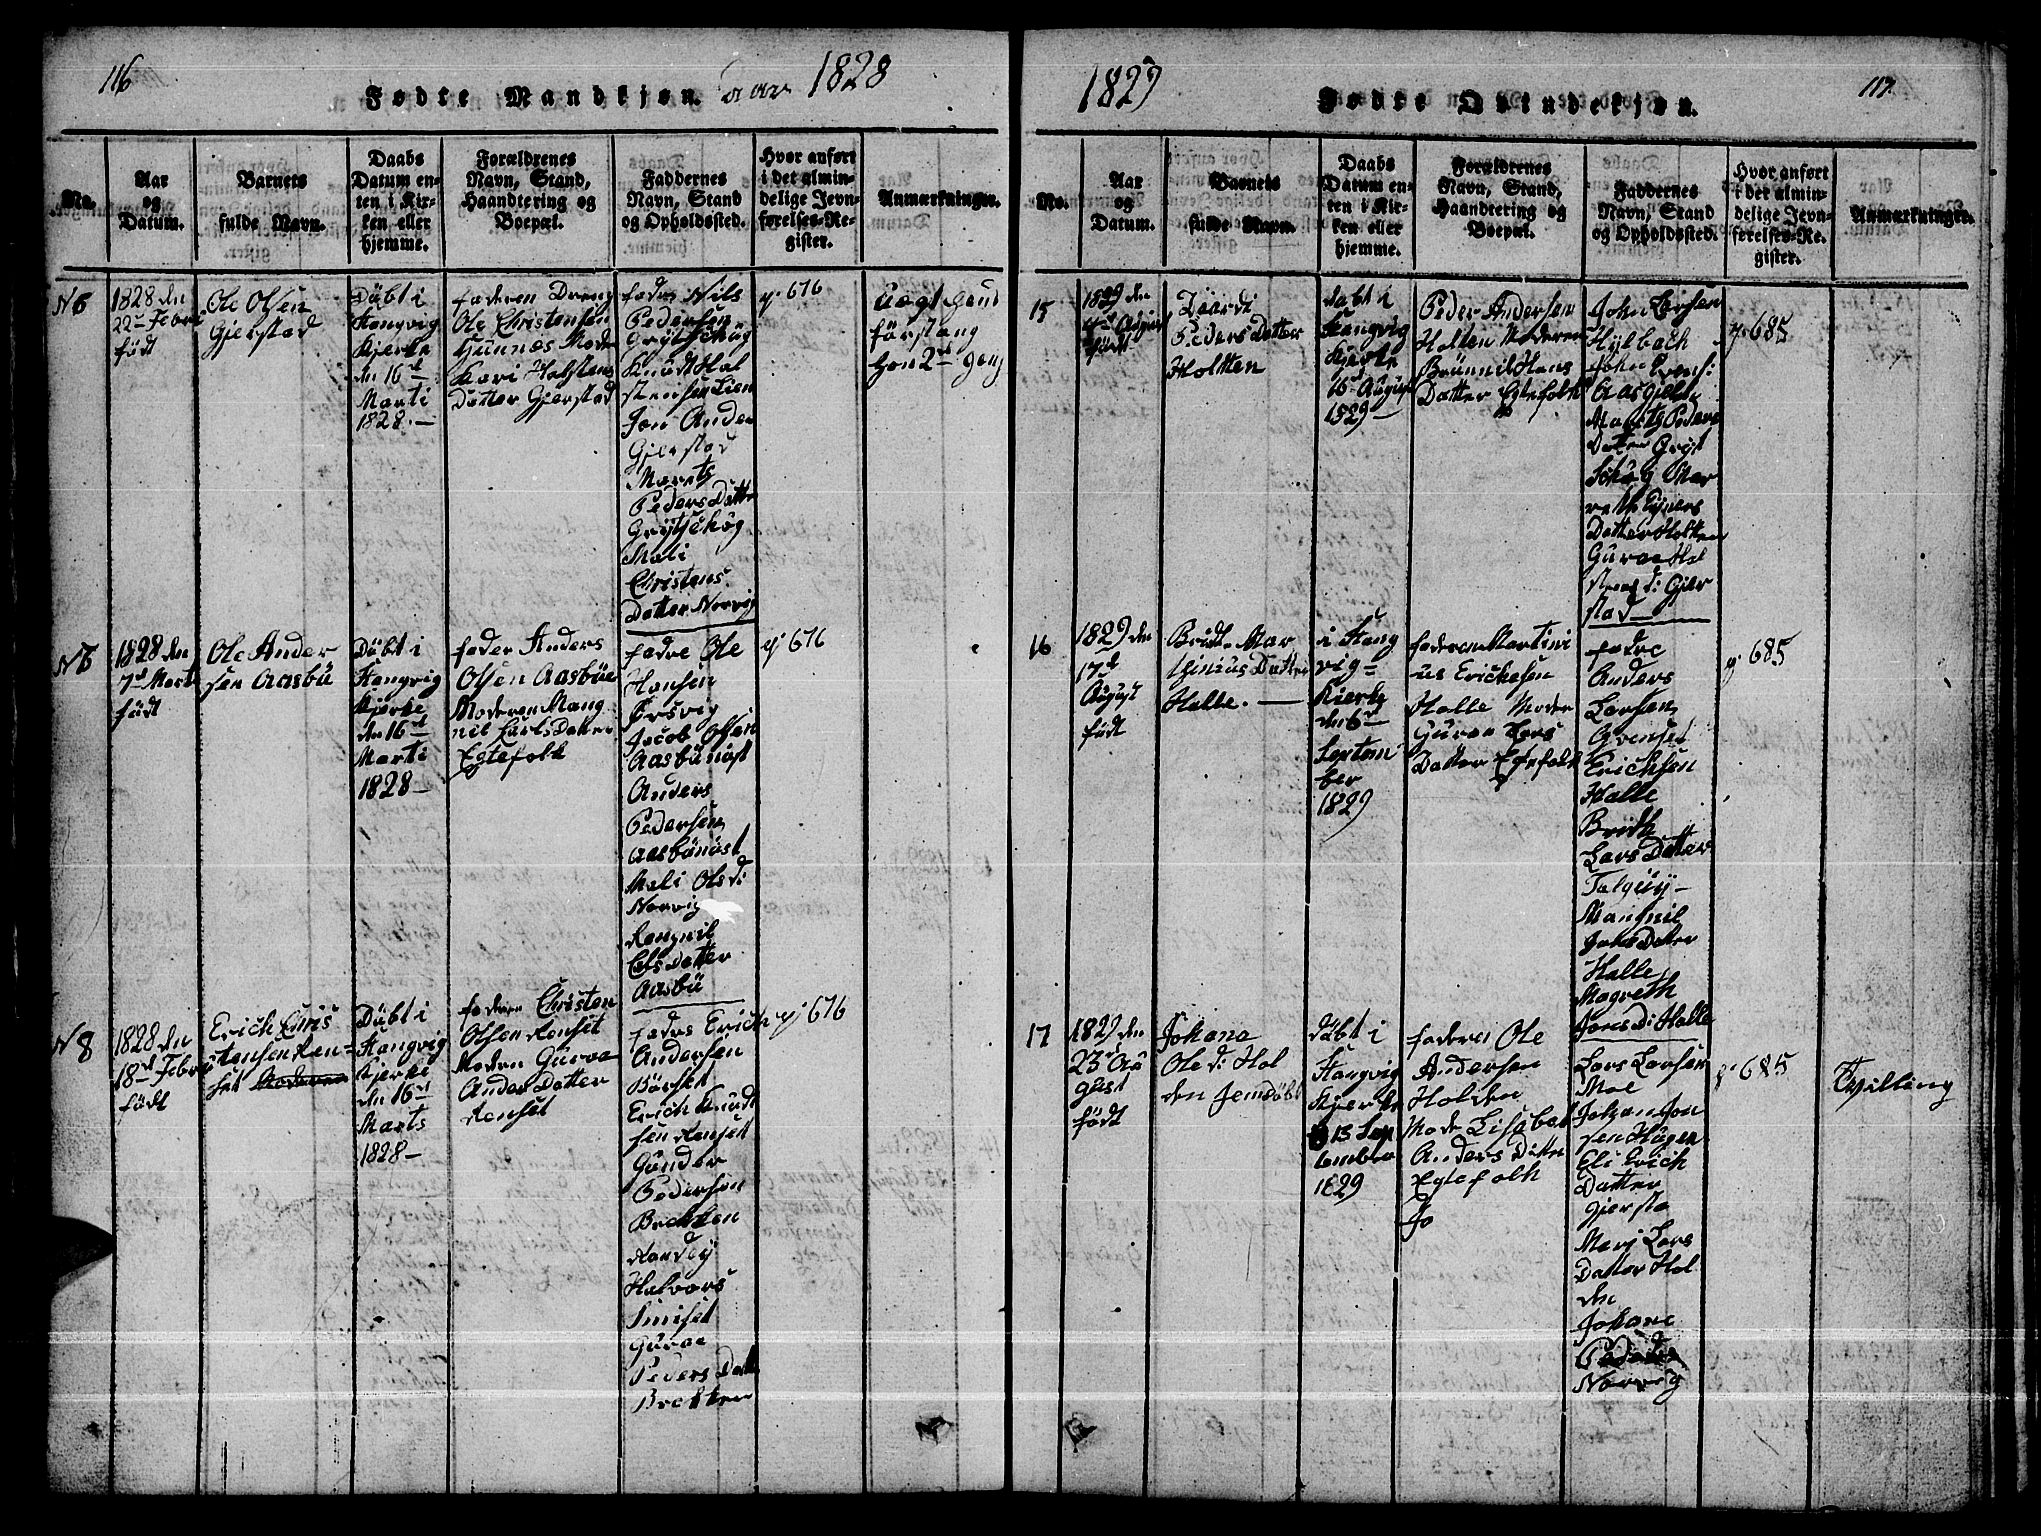 116
Fødte Mandkjøn. aar 1828
No.
Aar
og
Datum.
Barnets
fulde Navn.
Daabs
Datum en-
ten i Kir-
ken eller
hjemme.
Forældrenes
Navn, Stand,
Haandtering og
Boepæl.
Faddernes
Navn, Stand
og Opholdssted.
Hvor anført
i det almin-
delige Jevn-
førelses-Re-
gister.
Anmærkninger.
N 6
1828 den
22de Febri
födt
Ole Olsen
Gjerstad
Döbt i
Stangvig
Kjerke
den 16de
Marti
1828.—
faderen Dreng
Ole Christensen
Hunnæs Mode
Kari Holstens
Datter Gjerstad
fadre Nils
Pedersen
Grytschög
Knudt Hal
stensen Lien
Jon Ander
Gjerstad
Marits
Peders Datte
Grytschög
Mali
Christens
Datter Norvig
676
uegt
gang
1828 den
7de Mart
födt
Ole Ander
sen Aasbü
Döbt i
Stangvig
Kjerke
den 16de
Marti
1828—
fader Anders
Olsen Aasbüe
Moderen Mang
nil Datter
Egtefolk
fadre Ole
Hansen
Jacob Olsen
Aasbönöst
Anders
Pedersen
Aasbönöst
Mali Ols di
Norvig
Rangnil
Datter
Aasbü
676
N 8
1828 den
18de Febru
födt
Erich
tensen Ren-
set Moderen
Döbt i
Stangvig
Kjerke
den 16de
Marts
1828—
faderen Christen
Olsen Renset
Moderen Gurva
Anders Datter
Renset
fadre Erich
Andersen
Börset
Erich Knudt
sen Renset
Gunder
Pedersen
Brekken
Randey
Halvors
Guroe
Peders Datte
Brekken
676
1829
Fødte Qvindekjøn.
117
No.
Aar
og
Datum.
Barnets
fulde Navn.
Daabs
Datum en-
ten i Kir-
ken eller
hjemme.
Forældrenes
Navn, Stand,
Haandtering og
Boepæl.
Faddernes
Navn, Stand
og Opholdssted.
Hvor anført
i det almin-
delige Jevn-
førelses-Re-
gister.
Anmærkninger.
15
1829 den
August
födt
Peders Datter
Holten
Döbt i
Stangvig
Kjerke
16de August
1829—
Peder Andersen
Holten Moderen
Brünnil Hans
Datter Egtefolk
John Larsen
Hylbach
John
Aasgjelle
Marits Peders
Datter Gryt
Schög Mar
reth
Datter Holten
Gurae Hal
stens di Gjer
stad—
685
16
1829 den
17de
August
födt
Bridt Mar
thinius Datter
Halle.—
i Stang
vig—
Kierke
den 6de
Septem
ber
1829
faderen Martini
us Ericksen
Halle Moder
Guroe Lars
Datter Egtefolk
fadre
Anders
Larsen
Ericksen
Halle
Bridt
Lars Datter
Talgüy—
Mangnil
Johs Datter
Halle
Magreth
Jons di Halle
685
17
1829 den
23de Aü
gust
födt
Johana
Ole di Hol
den
Döbt i
Stangvig
Kjerke
13 Sep
tember
1829
faderen Ole
Andersen
Holden
Mode Lisabet
Anders Datter
Egtefolk
Jo
Lars Larsen
Moe
Johan Jon
sen Hagen
Eli Erich
Datter
Gjersta
Mari Lars
Datter Hol
den
Johane
Norvig
685
Tvilling